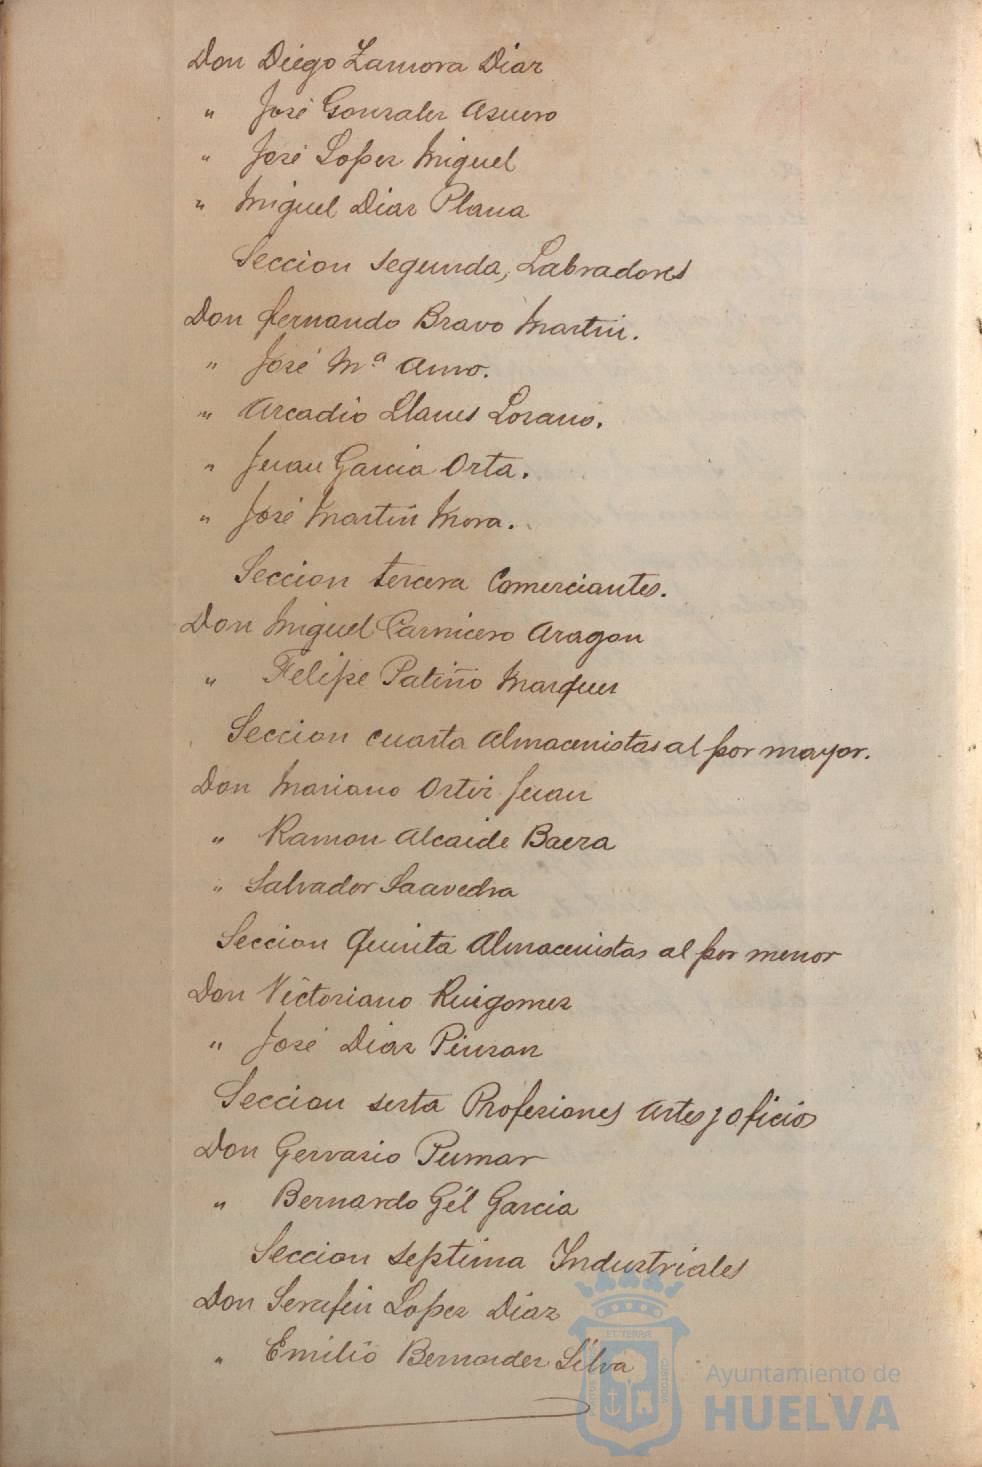 Don Diego Zamora Diaz
" José Gonzalez Asuero
" José Lopez Miguel
" Miguel Diaz Plana
Seccion segunda, Labradores
Don Fernando Bravo Martin.
" José Mª Amo.
" Arcadio Llanes Lozano.
" Juan Garcia Orta.
" José Martin Mora.
Seccion tercera Comerciantes.
Don Miguel Carnicero Aragon
" Felipe Patiño Marquez
Seccion cuarta Almacenistas al por mayor.
Don Mariano Ortiz Juan
" Ramon Alcaide Baeza
" Salvador Saavedra
Seccion Quinta Almacenistas al por menor
Don Victoriano Ruigomez
" José Diaz Pinzon
Seccion sesta Profesiones Artes y oficios
Don Gervasio Pumar
" Bernardo Gil Garcia
Seccion septima Industriales
Don Serafin Lopez Diaz
" Emilio Bernardez Silva
Ayuntamiento de
HUELVA